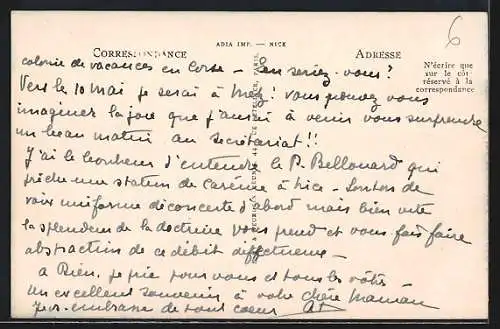 ADIA IMP. — NICE
6
CORRESPONDANCE
ADRESSE
N'écrire que
sur le côté
réservé à la
correspondance
colonie de vacances en Corse — en seriez-vous?
Vers le 10 Mai je serai à Metz! vous pouvez vous
imaginer la joie que j'aurai à venir vous surprendre
un beau matin au secrétariat!!
J'ai le bonheur d'entendre le P. Bellouard qui
prêche une station de carême à Nice — Son ton de
voix uniforme déconcerte d'abord mais bien vite
la splendeur de la doctrine vous prend et vous fait faire
abstraction de ce débit
à Dieu, je prie pour vous et tous les vôtres —
un excellent souvenir à votre chère Maman
Je vs. embrasse de tout coeur